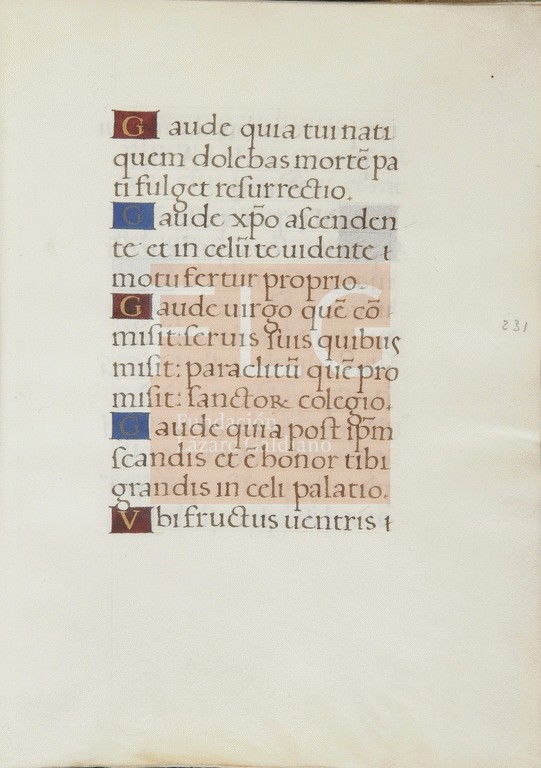 Gaude quia tui nati
quem dolebas mortē pa
ti fulget resurrectio.
Gaude xp̄o ascenden
te et in celū te uidente ı
motu fertur proprio.
Gaude uirgo quē cō
misit: seruis suis quibus
misit: paraclitū quē pro
misit: sanctoꝝ colegio.
Gaude quia post ip̄m
scandis et ē honor tibi
grandis in celi palatio.
Vbi fructus uentris ı
231
FLG
Fundación
Lázaro Galdiano